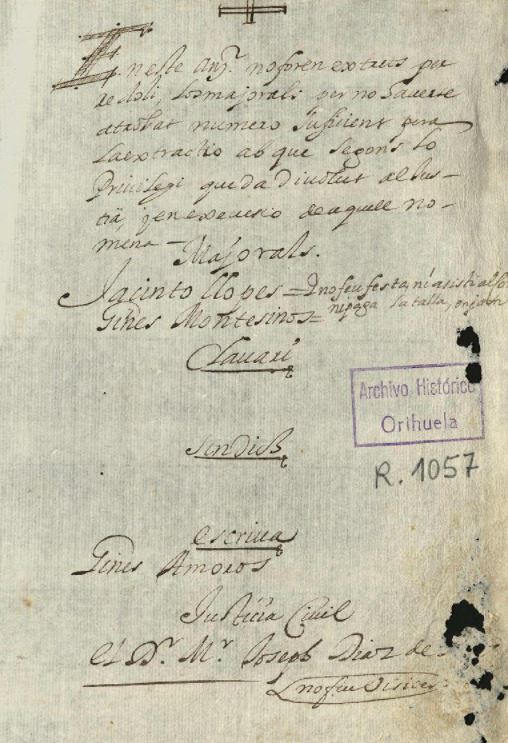 En este Any. no foren extrets per
redoli, los majorals per no haverse
atrobat numero suficient pera
la extractio ab que segons lo
Privilegi queda divolut al Jus-
tia, y en execusio de aquell no-
mena
Majorals.
Jacinto Llopes = no feu festa ni asisti al
Gines Montesinos = ni paga la talla,
Clavari
Sindich
escriva
Gines Amoros
Justicia Civil
El Dr. Mr. Joseph Diaz de
no feu
Archivo Histórico
Orihuela
R. 1057